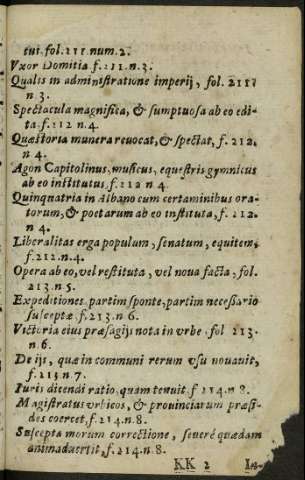 eui. fol. 211. num. 2.
Vxor Domitia. f. 211. n. 3.
Qualis in administratione imperij, fol. 211.
n. 3.
Spectacula magnifica, & sumptuosa ab eo edi-
ta. f. 212 n. 4.
Quæstoria munera reuocat, & spectat, f. 212.
n. 4.
Agon Capitolinus, musicus, equestris, gymnicus
ab eo institutus. f. 212 n 4.
Quinquatria in Albano cum certaminibus ora-
torum, & poetarum ab eo instituta, f. 212.
n. 4.
Liberalitas erga populum, senatum, equitem,
f. 212. n. 4.
Opera ab eo, vel restituta, vel noua facta, fol.
213. n. 5.
Expeditiones partim sponte, partim necessario
susceptæ, f. 213. n 6.
Victoria eius præsagijs nota in vrbe, fol 213.
n. 6.
De ijs, quæ in communi rerum vsu nouauit,
f. 213 n. 7.
Iuris dicendi ratio, quam tenuit, f. 214. n 8.
Magistratus vrbicos, & prouinciarum præsi-
des coercet, f. 214. n. 8.
Suscepta morum correctione, seuerè quædam
animaduertit, f. 214. n. 8.
KK 2